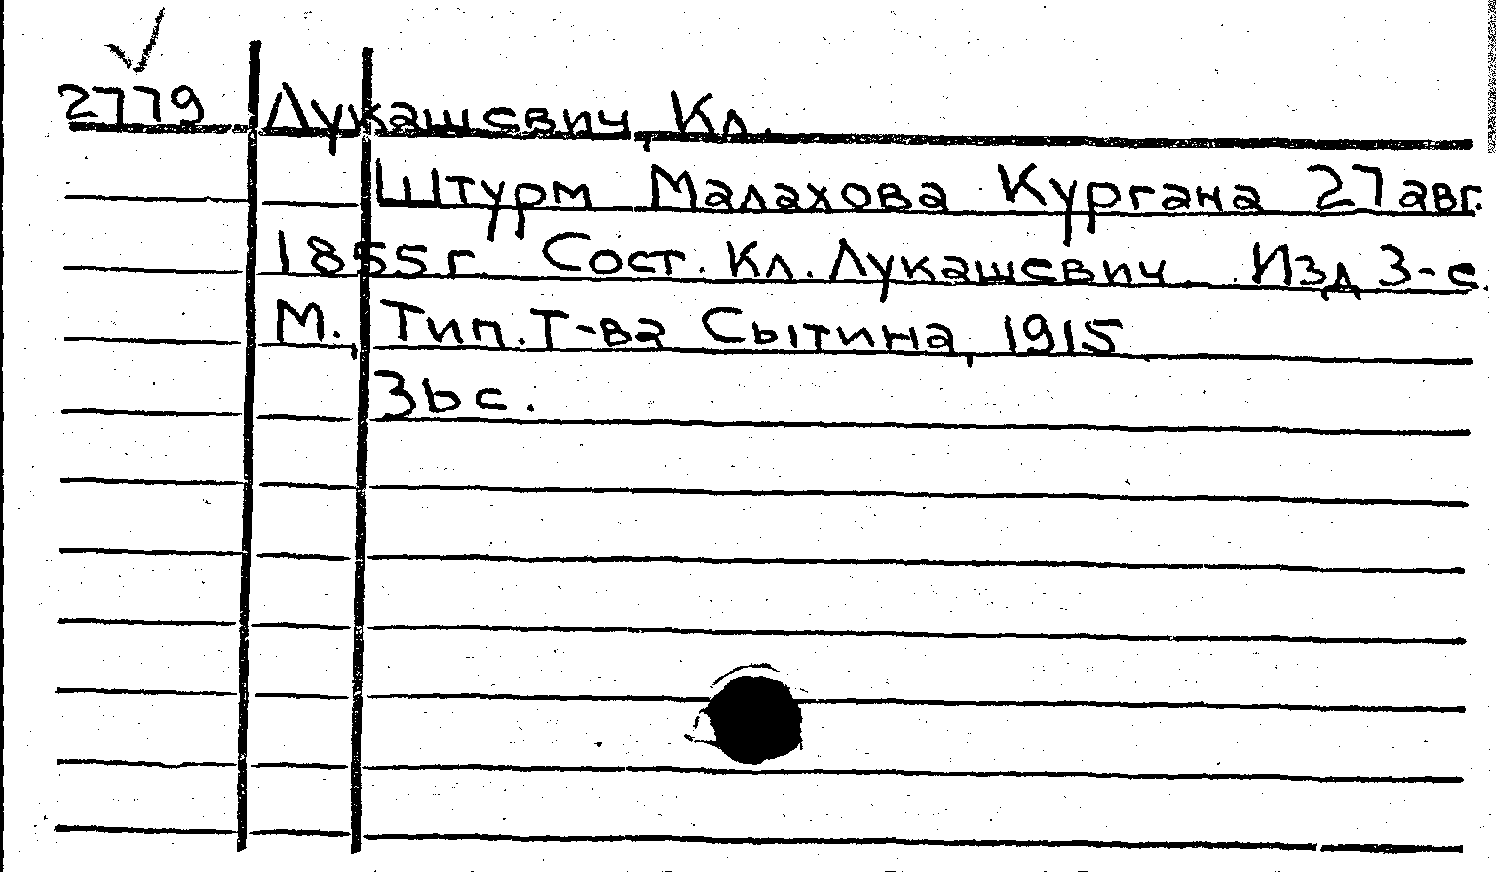 2779 Лукашевич, Кл.
Штурм Малахова Кургана 27 авг.
1855 г Сост. Кл. Лукашевич. Изд 3-е.
М., Тип. Т-ва Сытина, 1915
36 с.